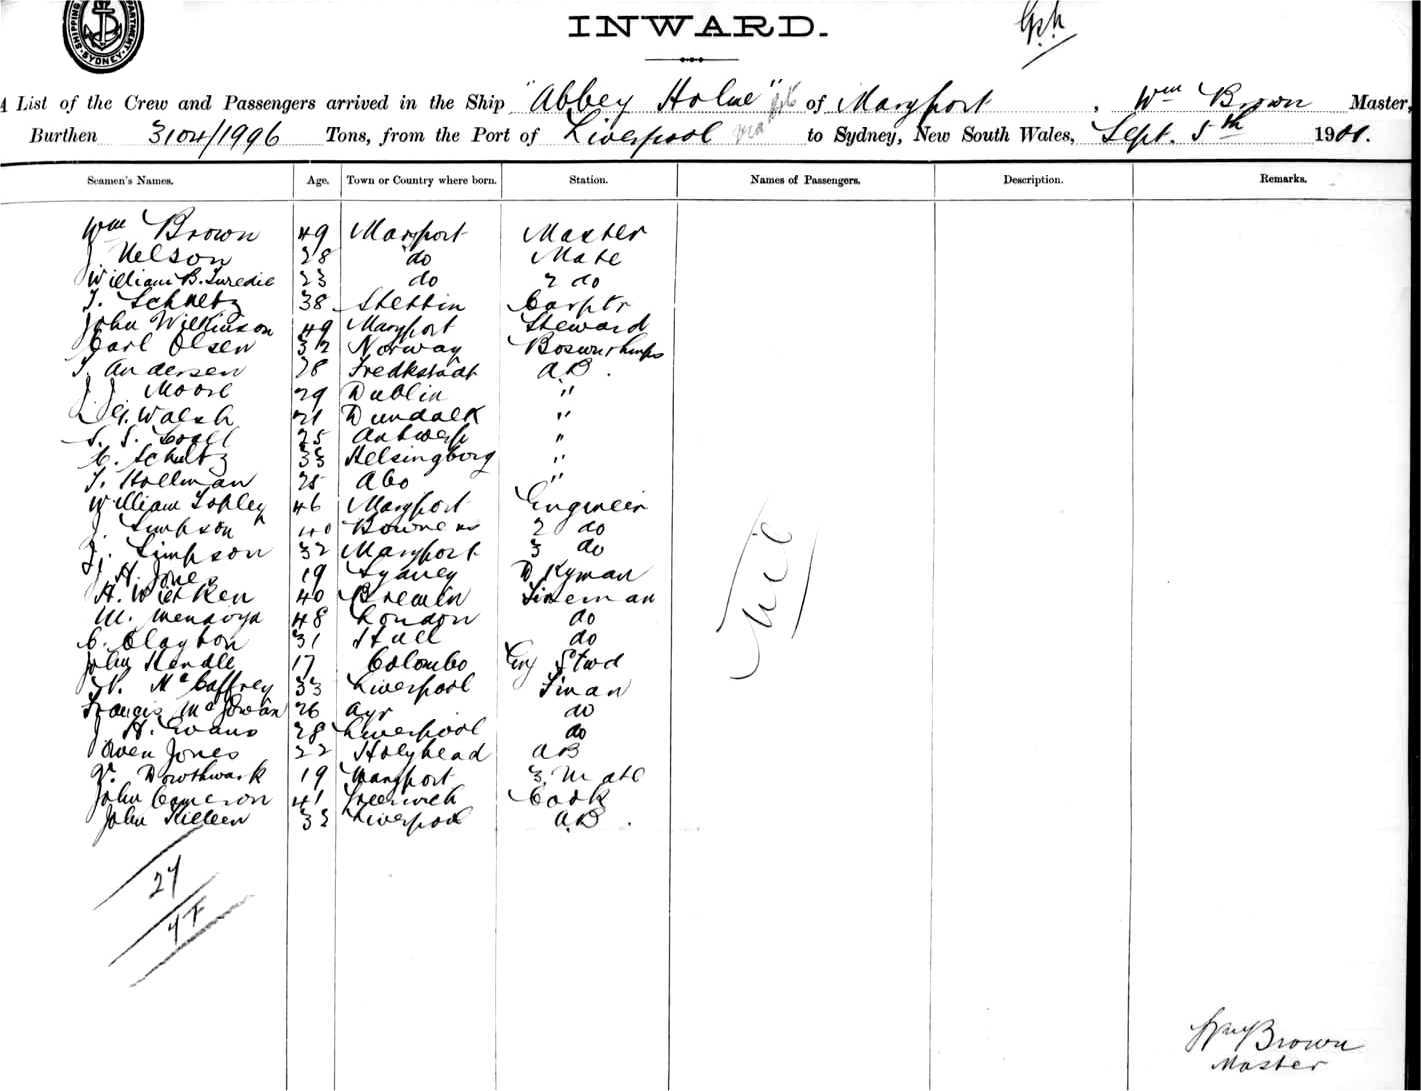 SHIPPING DEPARTMENT SYDNEY
INWARD.
A List of the Crew and Passengers arrived in the Ship "Abbey Holme" of Maryport, Wm Brown Master,
Burthen 3104/1996 Tons, from the Port of Liverpool to Sydney, New South Wales, Sept. 5th 1901.
Seamen's Names. Age. Town or Country where born. Station. Names of Passengers. Description. Remarks.
Wm Brown 49 Maryport Master
J Nelson 28 do Mate
William B. 23 do 2 do
T. Schultz 38 Stettin Carptr
John Wilkinson 49 Maryport Steward
Carl Olsen 32 Norway Boswn & Lamps
T. Andersen 28 Fredkstadt A.B.
J J Moore 29 Dublin "
G. Walsh 21 Dundalk "
S. S. 25 Antwerp "
C. Schultz 33 Helsingborg "
T. Hollman 25 Abo "
William Topley 46 Maryport Engineer
J. Simpson 40 Bowness 2 do
J. Simpson 32 Maryport 3 do
H. Jones 19 Sydney D Kyman
H. Wierken 40 Bremen Fireman
M. Mendoza 48 London do
C. Clayton 31 Hull do
John Hendle 17 Colombo Eng Stwd
N. McCaffrey 33 Liverpool Fman
Francis McGowan 26 Ayr do
J H. Evans 28 Liverpool do
Owen Jones 22 Holyhead AB
Dowthwark 19 Maryport 3. Mate
John Cameron 41 Greenwich Cook
John Killeen 33 Liverpool A.B.
Nil
27
Wm Brown
Master